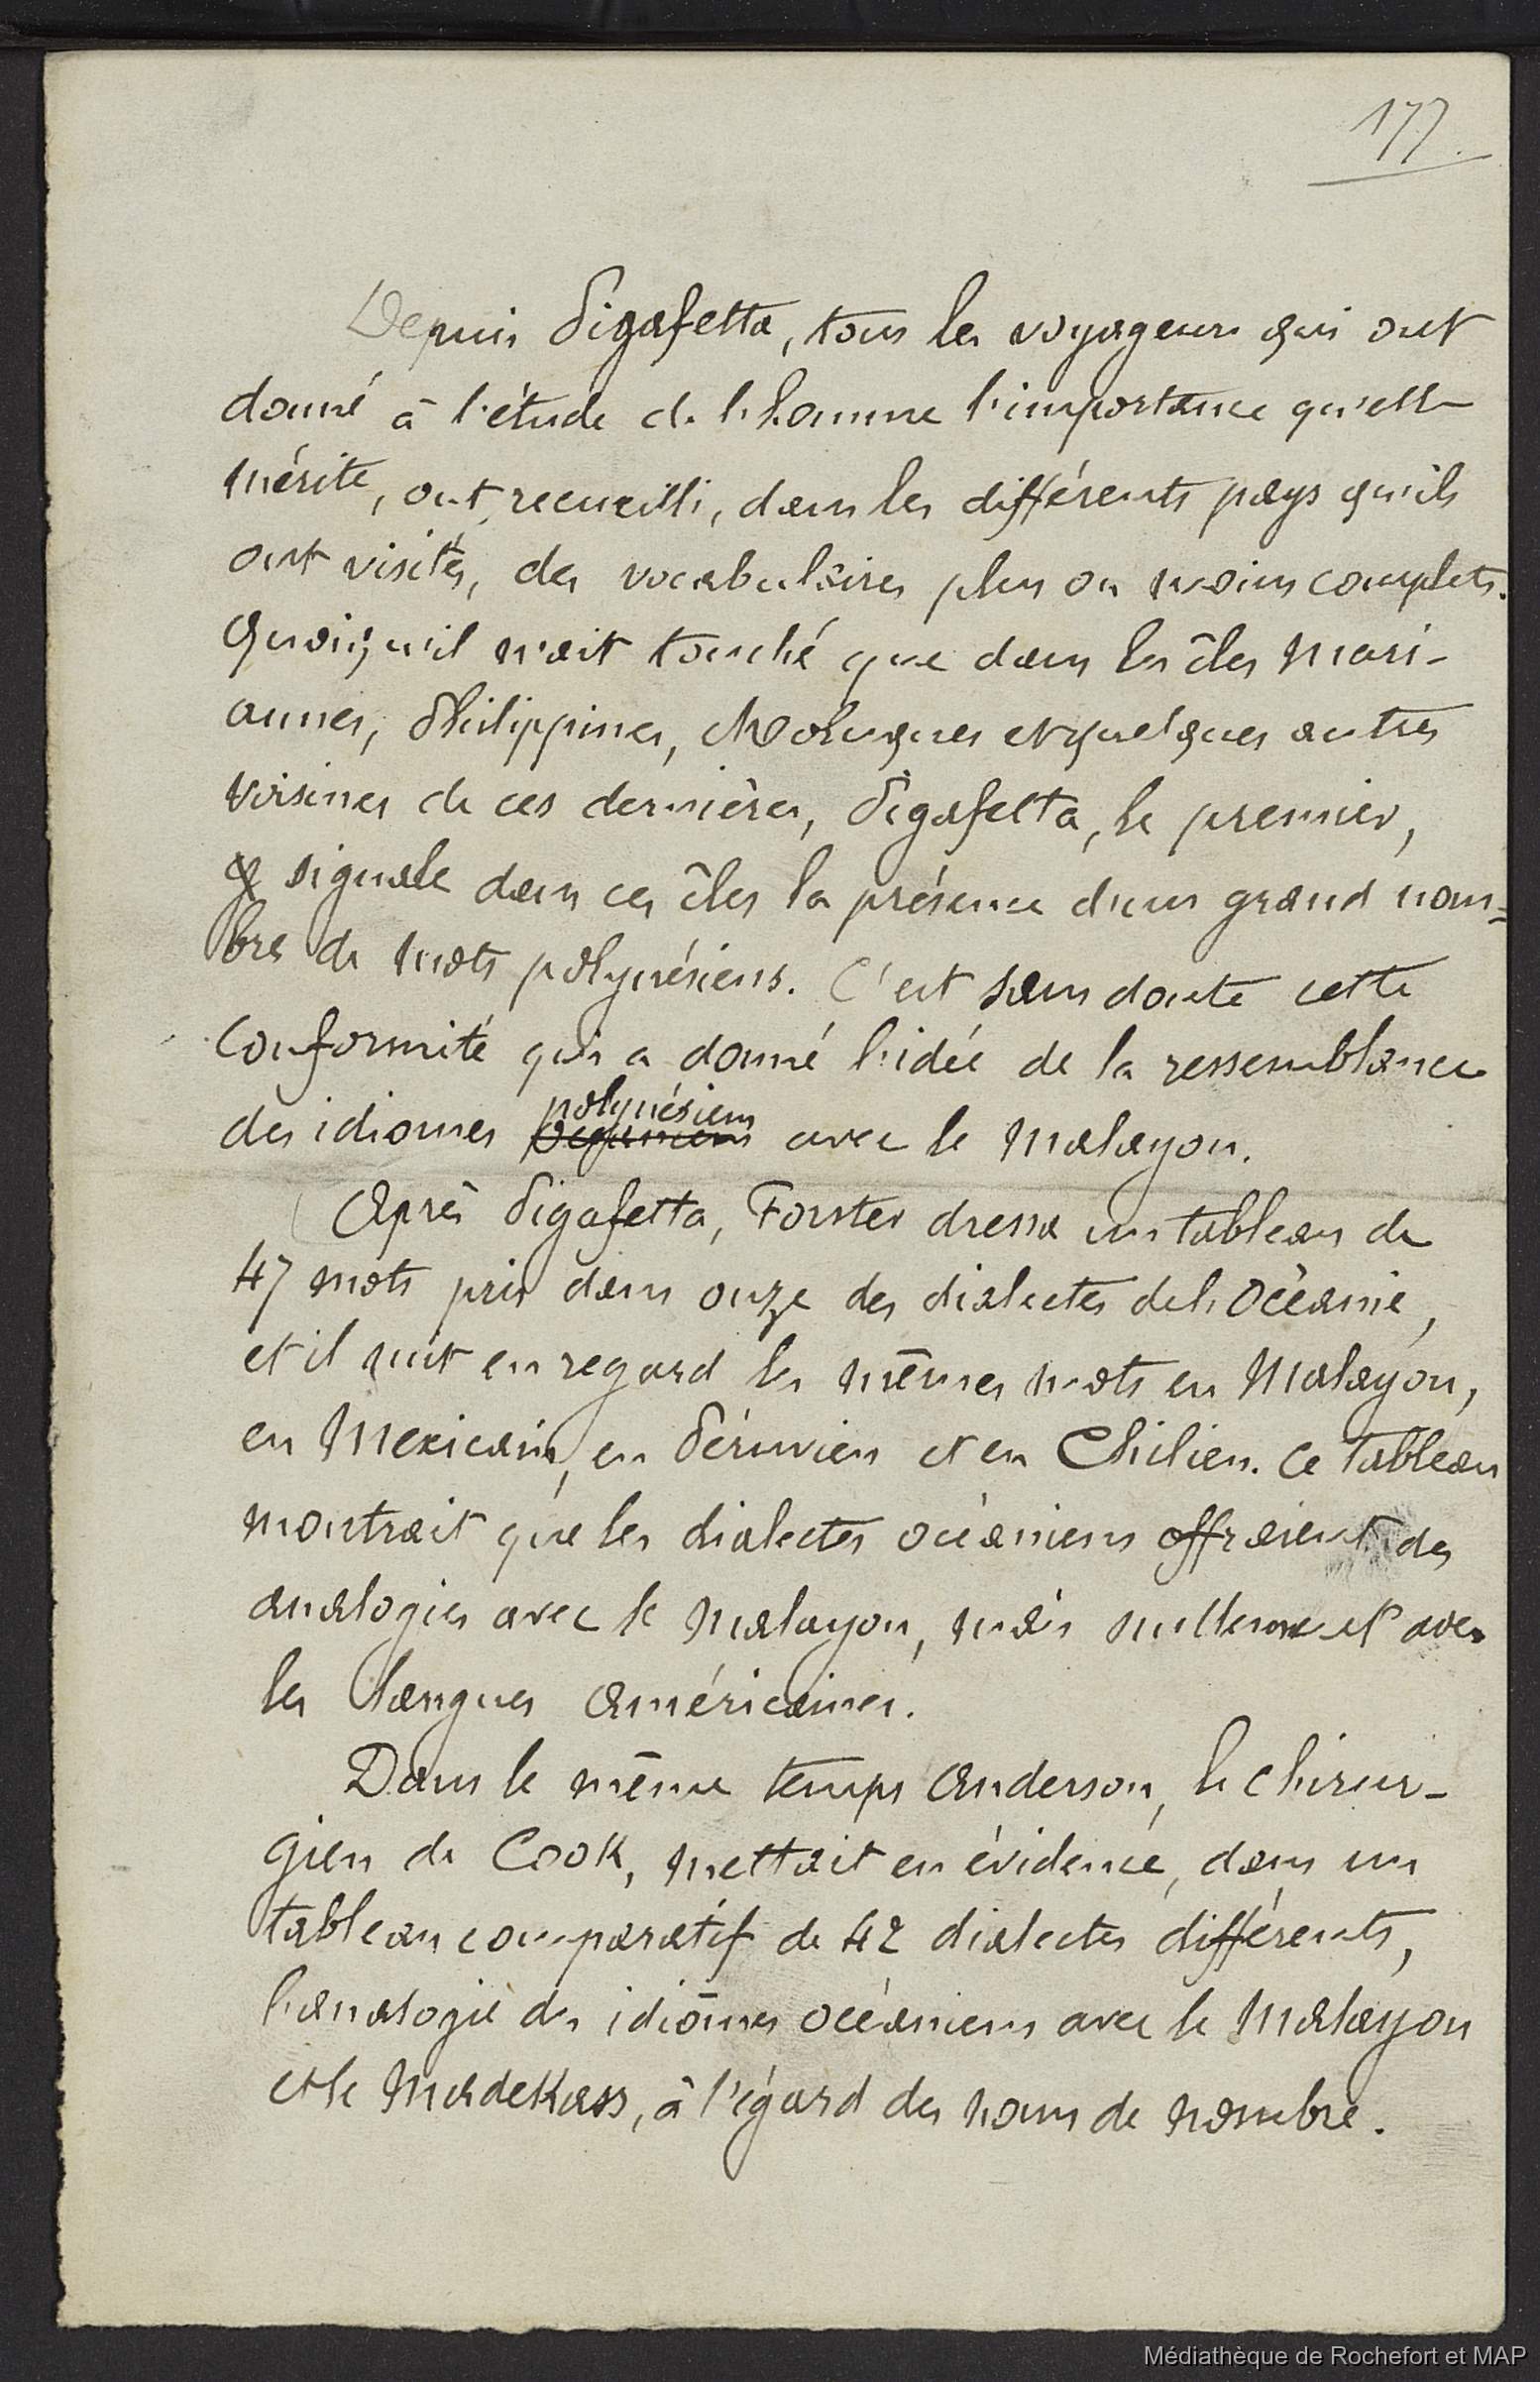 177.
Depuis Pigafetta, tous les voyageurs qui ont
donné à l'étude de l'homme l'importance qu'elle
mérite, ont recueilli, dans les différents pays qu'ils
ont visités, des vocabulaires plus ou moins complets.
Quoiqu'il n'ait touché que dans les îles Mari-
annes, Philippines, Moluques et quelques autres
voisines de ces dernières, Pigafetta, le premier,
signale dans ces îles la présence d'un grand nom=
bre de mots polynésiens. C'est sans doute cette
conformité qui a donné l'idée de la ressemblance
des idiomes polynésiens océaniens avec le Malayou.
Après Pigafetta, Forster dressa un tableau de
47 mots pris dans onze des dialectes de l'Océanie,
et il mit en regard les mêmes mots en Malayou,
en Mexicain, en Péruvien et en Chilien. Ce tableau
montrait que les dialectes océaniens offraient des
analogies avec le Malayou, mais nullement avec
les langues Américaines.
Dans le même temps Anderson, le chirur-
gien de Cook, mettait en évidence, dans un
tableau comparatif de 42 dialectes différents,
l'analogie des idiômes océaniens avec le Malayou
et le Madekass, à l'égard des noms de nombre.
Médiathèque de Rochefort et MAP